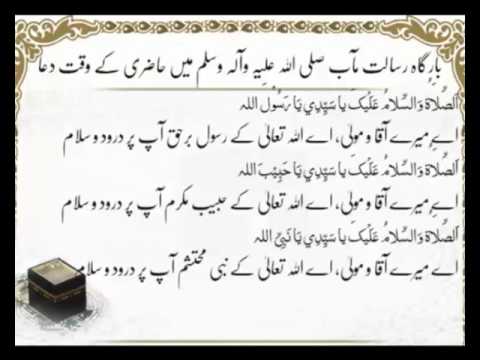 بارگاہ رسالت مآب صلی اللہ علیہ وآلہ وسلم میں حاضری کے وقت دعا
اَلصَّلَاۃُ وَالسَّلَامُ عَلَیْکَ یَا سَیِّدِیْ یَا رَسُوْلَ اللہ
اے میرے آقا و مولیٰ، اے اللہ تعالیٰ کے رسول برحق آپ پر درود و سلام
اَلصَّلَاۃُ وَالسَّلَامُ عَلَیْکَ یَا سَیِّدِیْ یَا حَبِیْبَ اللہ
اے میرے آقا و مولیٰ، اے اللہ تعالیٰ کے حبیب مکرم آپ پر درود و سلام
اَلصَّلَاۃُ وَالسَّلَامُ عَلَیْکَ یَا سَیِّدِیْ یَا نَبِیَّ اللہ
اے میرے آقا و مولیٰ، اے اللہ تعالیٰ کے نبی محتشم آپ پر درود و سلام